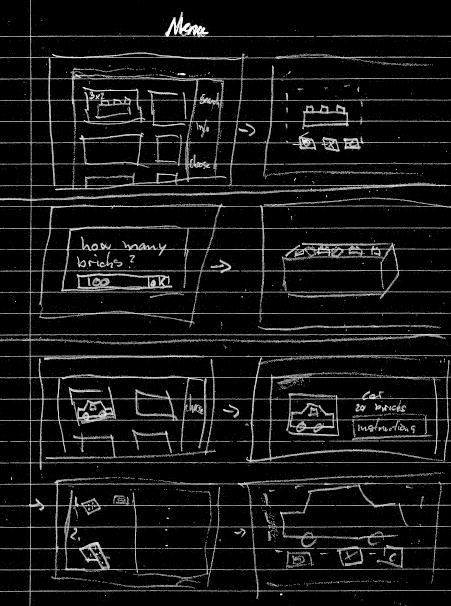 Menu
3x2
Search
Info
Choose
how many
bricks?
100 OK
choose
car
20 bricks
instructions
1.
2.